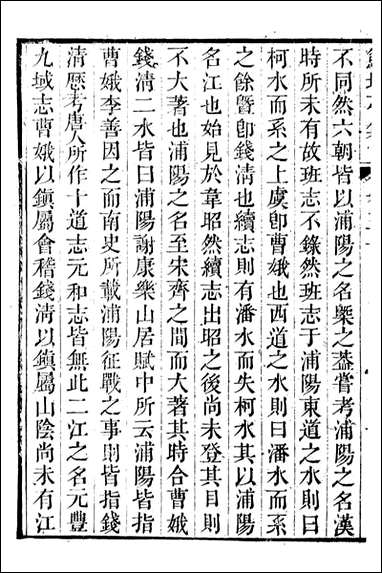 不同然六朝皆以浦陽之名槩之葢嘗考浦陽之名漢
時所未有故班志不錄然班志于浦陽東道之水則曰
柯水而系之上虞卽曹娥也西道之水則曰潘水而系
之餘曁卽錢清也續志則有潘水而失柯水其以浦陽
名江也始見於韋昭然續志出昭之後尚未登其目則
不大著也浦陽之名至宋齊之間而大著其時合曹娥
錢清二水皆曰浦陽謝康樂山居賦中所云浦陽皆指
曹娥李善因之而南史所載浦陽征戰之事則皆指錢
清歷考唐人所作十道志元和志皆無此二江之名元豐
九域志曹娥以鎭屬會稽錢清以鎭屬山陰尚未有江